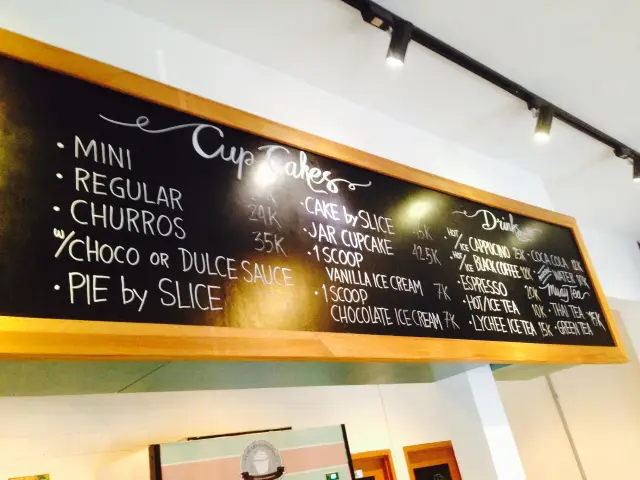 Cup Cakes
· MINI
· REGULAR 24K
· CHURROS 35K
w/ CHOCO OR DULCE SAUCE
· PIE by SLICE
· CAKE by SLICE
· JAR CUPCAKE 42.5K
· 1 SCOOP
VANILLA ICE CREAM 7K
· 1 SCOOP
CHOCOLATE ICE CREAM 7K
Drinks
· HOT/ICE CAPPUCINO 25K
· HOT/ICE BLACK COFFEE
· ESPRESSO 20K
· HOT/ICE TEA 10K
· LYCHEE ICE TEA 15K
· COCA COLA
WATER
· THAI TEA
· GREEN TEA